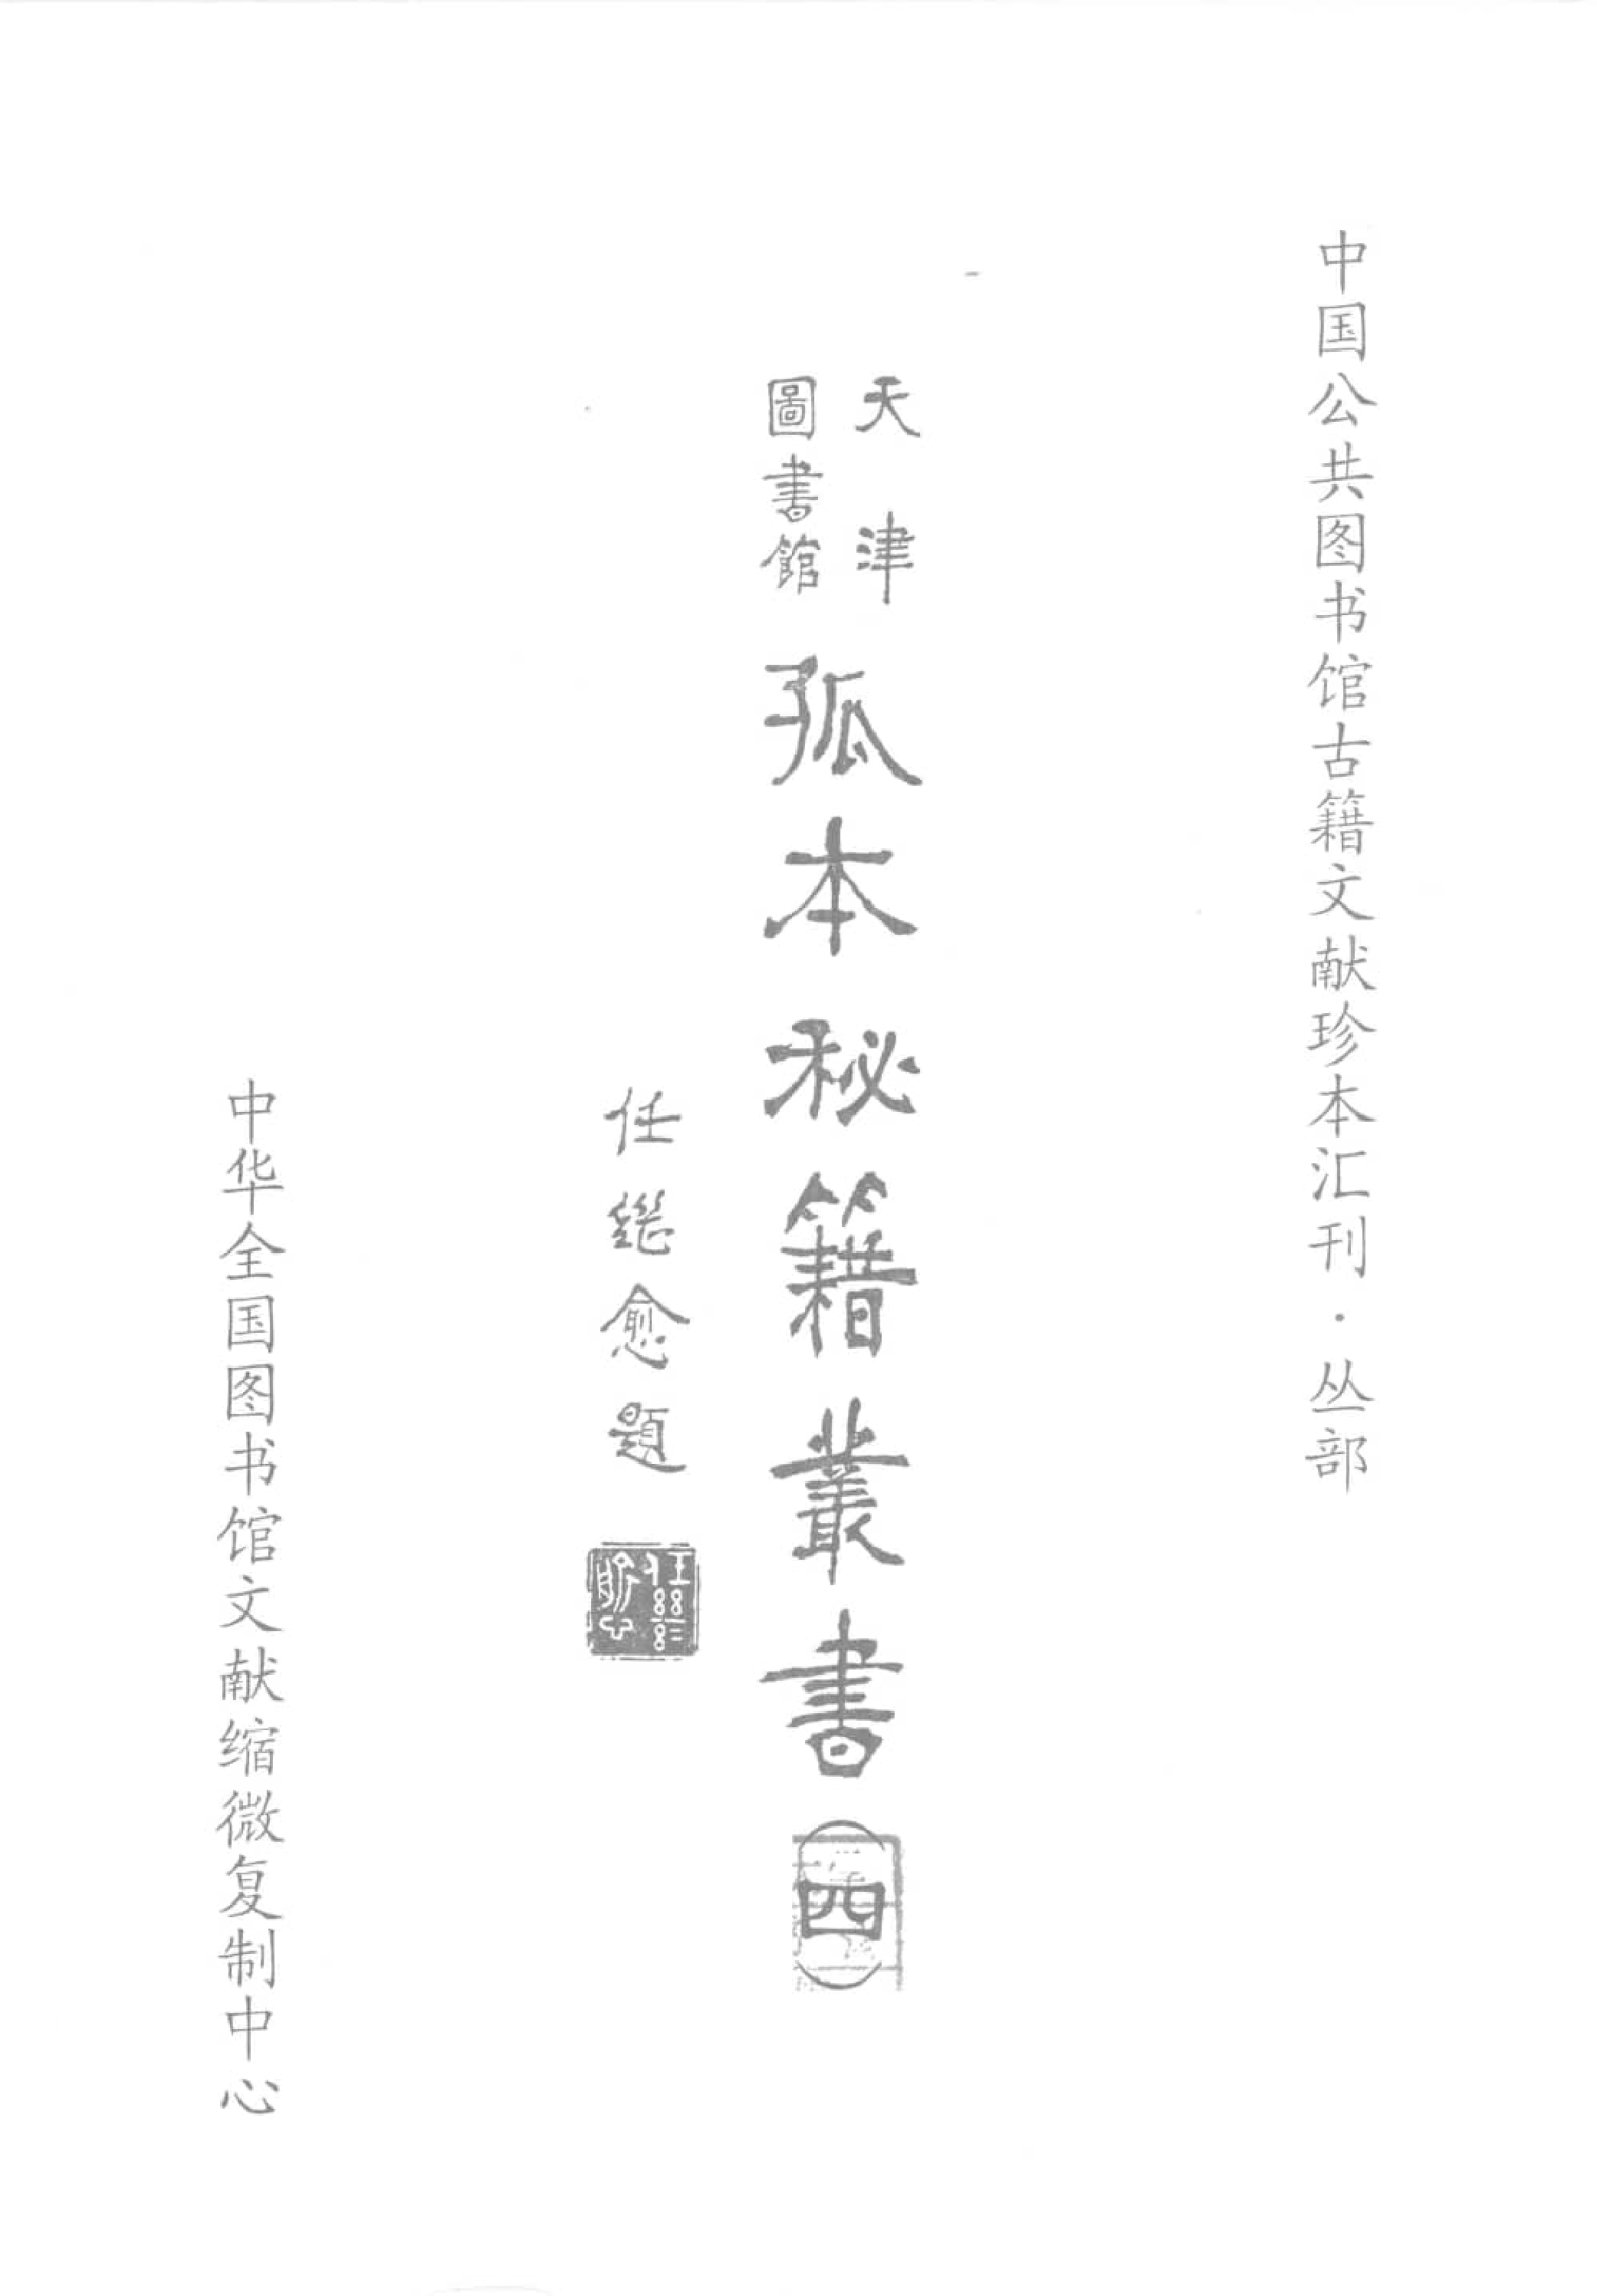 中国公共图书馆古籍文献珍本汇刊·丛部
天津
圖書館
孤本秘籍叢書
四
任继愈題
中华全国图书馆文献缩微复制中心